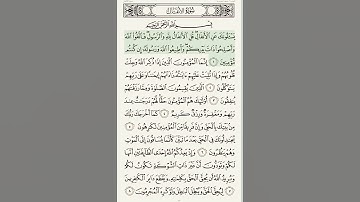 سُورَةُ الأَنفَالِ
بِسْمِ ٱللَّهِ ٱلرَّحْمَٰنِ ٱلرَّحِيمِ
يَسْـَٔلُونَكَ عَنِ ٱلْأَنفَالِ قُلِ ٱلْأَنفَالُ لِلَّهِ وَٱلرَّسُولِ فَٱتَّقُوا۟ ٱللَّهَ
وَأَصْلِحُوا۟ ذَاتَ بَيْنِكُمْ وَأَطِيعُوا۟ ٱللَّهَ وَرَسُولَهُۥٓ إِن كُنتُم
مُّؤْمِنِينَ ١ إِنَّمَا ٱلْمُؤْمِنُونَ ٱلَّذِينَ إِذَا ذُكِرَ ٱللَّهُ وَجِلَتْ
قُلُوبُهُمْ وَإِذَا تُلِيَتْ عَلَيْهِمْ ءَايَٰتُهُۥ زَادَتْهُمْ إِيمَٰنًا وَعَلَىٰ رَبِّهِمْ
يَتَوَكَّلُونَ ٢ ٱلَّذِينَ يُقِيمُونَ ٱلصَّلَوٰةَ وَمِمَّا رَزَقْنَٰهُمْ
يُنفِقُونَ ٣ أُو۟لَٰٓئِكَ هُمُ ٱلْمُؤْمِنُونَ حَقًّا لَّهُمْ دَرَجَٰتٌ عِندَ
رَبِّهِمْ وَمَغْفِرَةٌ وَرِزْقٌ كَرِيمٌ ٤ كَمَآ أَخْرَجَكَ رَبُّكَ
مِنۢ بَيْتِكَ بِٱلْحَقِّ وَإِنَّ فَرِيقًا مِّنَ ٱلْمُؤْمِنِينَ لَكَٰرِهُونَ ٥
يُجَٰدِلُونَكَ فِى ٱلْحَقِّ بَعْدَ مَا تَبَيَّنَ كَأَنَّمَا يُسَاقُونَ إِلَى ٱلْمَوْتِ
وَهُمْ يَنظُرُونَ ٦ وَإِذْ يَعِدُكُمُ ٱللَّهُ إِحْدَى ٱلطَّآئِفَتَيْنِ أَنَّهَا
لَكُمْ وَتَوَدُّونَ أَنَّ غَيْرَ ذَاتِ ٱلشَّوْكَةِ تَكُونُ لَكُمْ
وَيُرِيدُ ٱللَّهُ أَن يُحِقَّ ٱلْحَقَّ بِكَلِمَٰتِهِۦ وَيَقْطَعَ دَابِرَ ٱلْكَٰفِرِينَ
٧ لِيُحِقَّ ٱلْحَقَّ وَيُبْطِلَ ٱلْبَٰطِلَ وَلَوْ كَرِهَ ٱلْمُجْرِمُونَ ٨